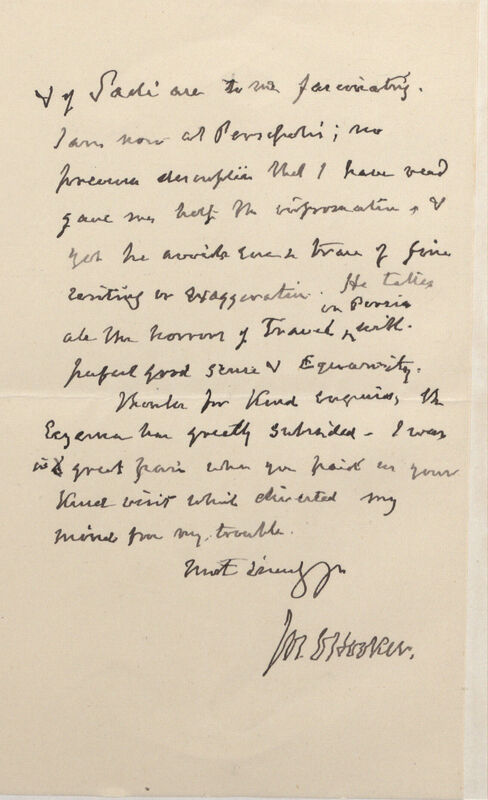 & of Sadi are to me fascinating.
I am now at Persepolis; no
previous description that I have read
gave me half the information, &
yet he avoids even a trace of fine
writing or exaggeration. He takes
all the horrors of Travel in Persia with
perfect good sense & Equanimity.
Thanks for kind enquiries, the
Eczema has greatly subsided – I was
in great pain when you paid us your
kind visit which diverted my
mind from my trouble.
Most sincerely yrs
Jos. D Hooker.